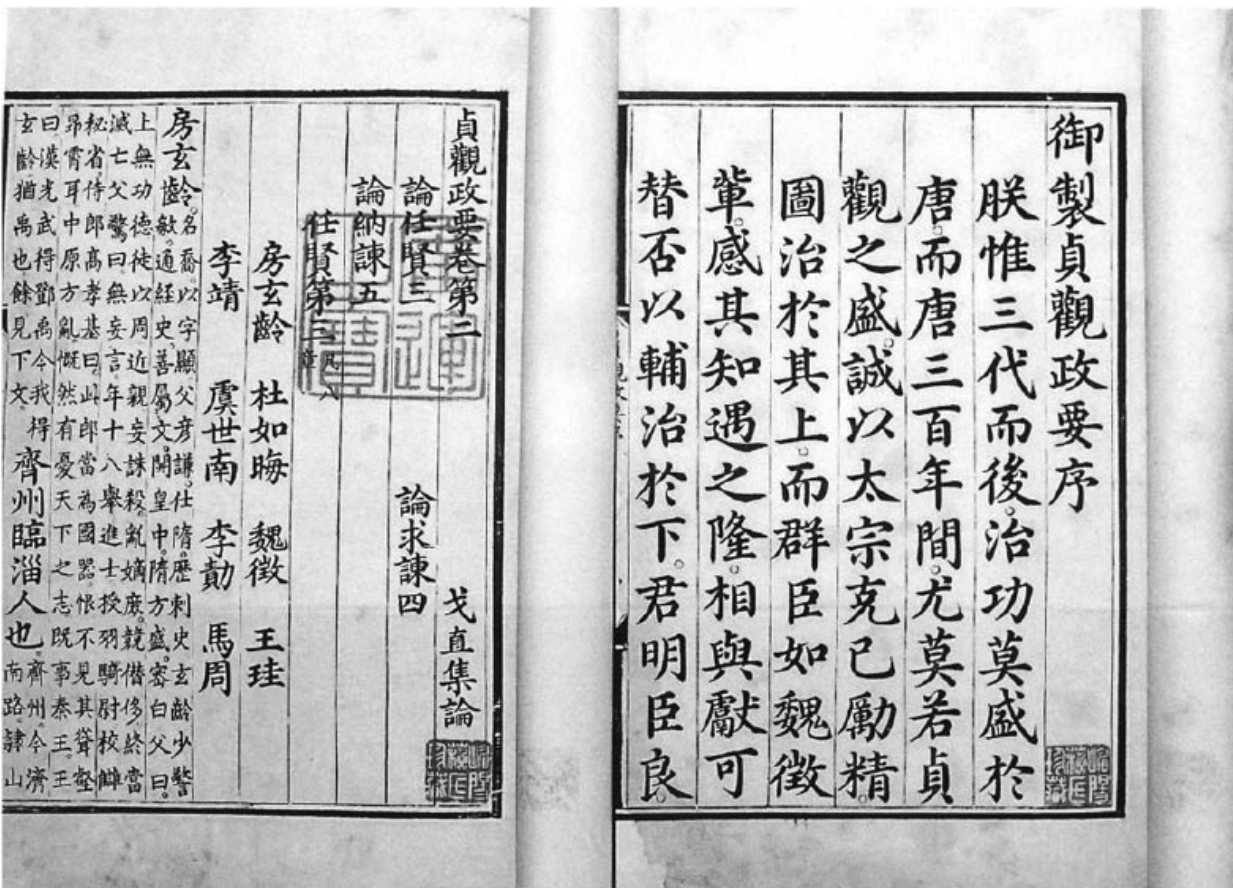 御製貞觀政要序
朕惟三代而後。治功莫盛於
唐。而唐三百年間。尤莫若貞
觀之盛。誠以太宗克己勵精。
圖治於其上。而群臣如魏徵
輩。感其知遇之隆。相與獻可
替否以輔治於下。君明臣良。
貞觀政要卷第二 戈直集論
論任賢三 論求諫四
論納諫五
任賢第三 凡八章
房玄齡 杜如晦 魏徵 王珪
李靖 虞世南 李勣 馬周
房玄齡。名喬。以字顯父彥謙。仕隋。歷刺史玄齡少警
敏。通經史。善屬文。開皇中。隋方盛。密白父曰。
上無功德徒以周近親妄誅殺。亂嫡庶。競僭侈終當
滅亡父驚曰。無妄言。年十八舉進士授羽騎尉校讎
秘省。侍郎高孝基曰。此郎當為國器。恨不見其聳壑
昂霄耳中原方亂。慨然有憂天下之志既事秦王。王
曰。漢光武得鄧禹今我得
玄齡。猶禹也餘見下文。
齊州臨淄人也。
齊州今濟
南路。隸山